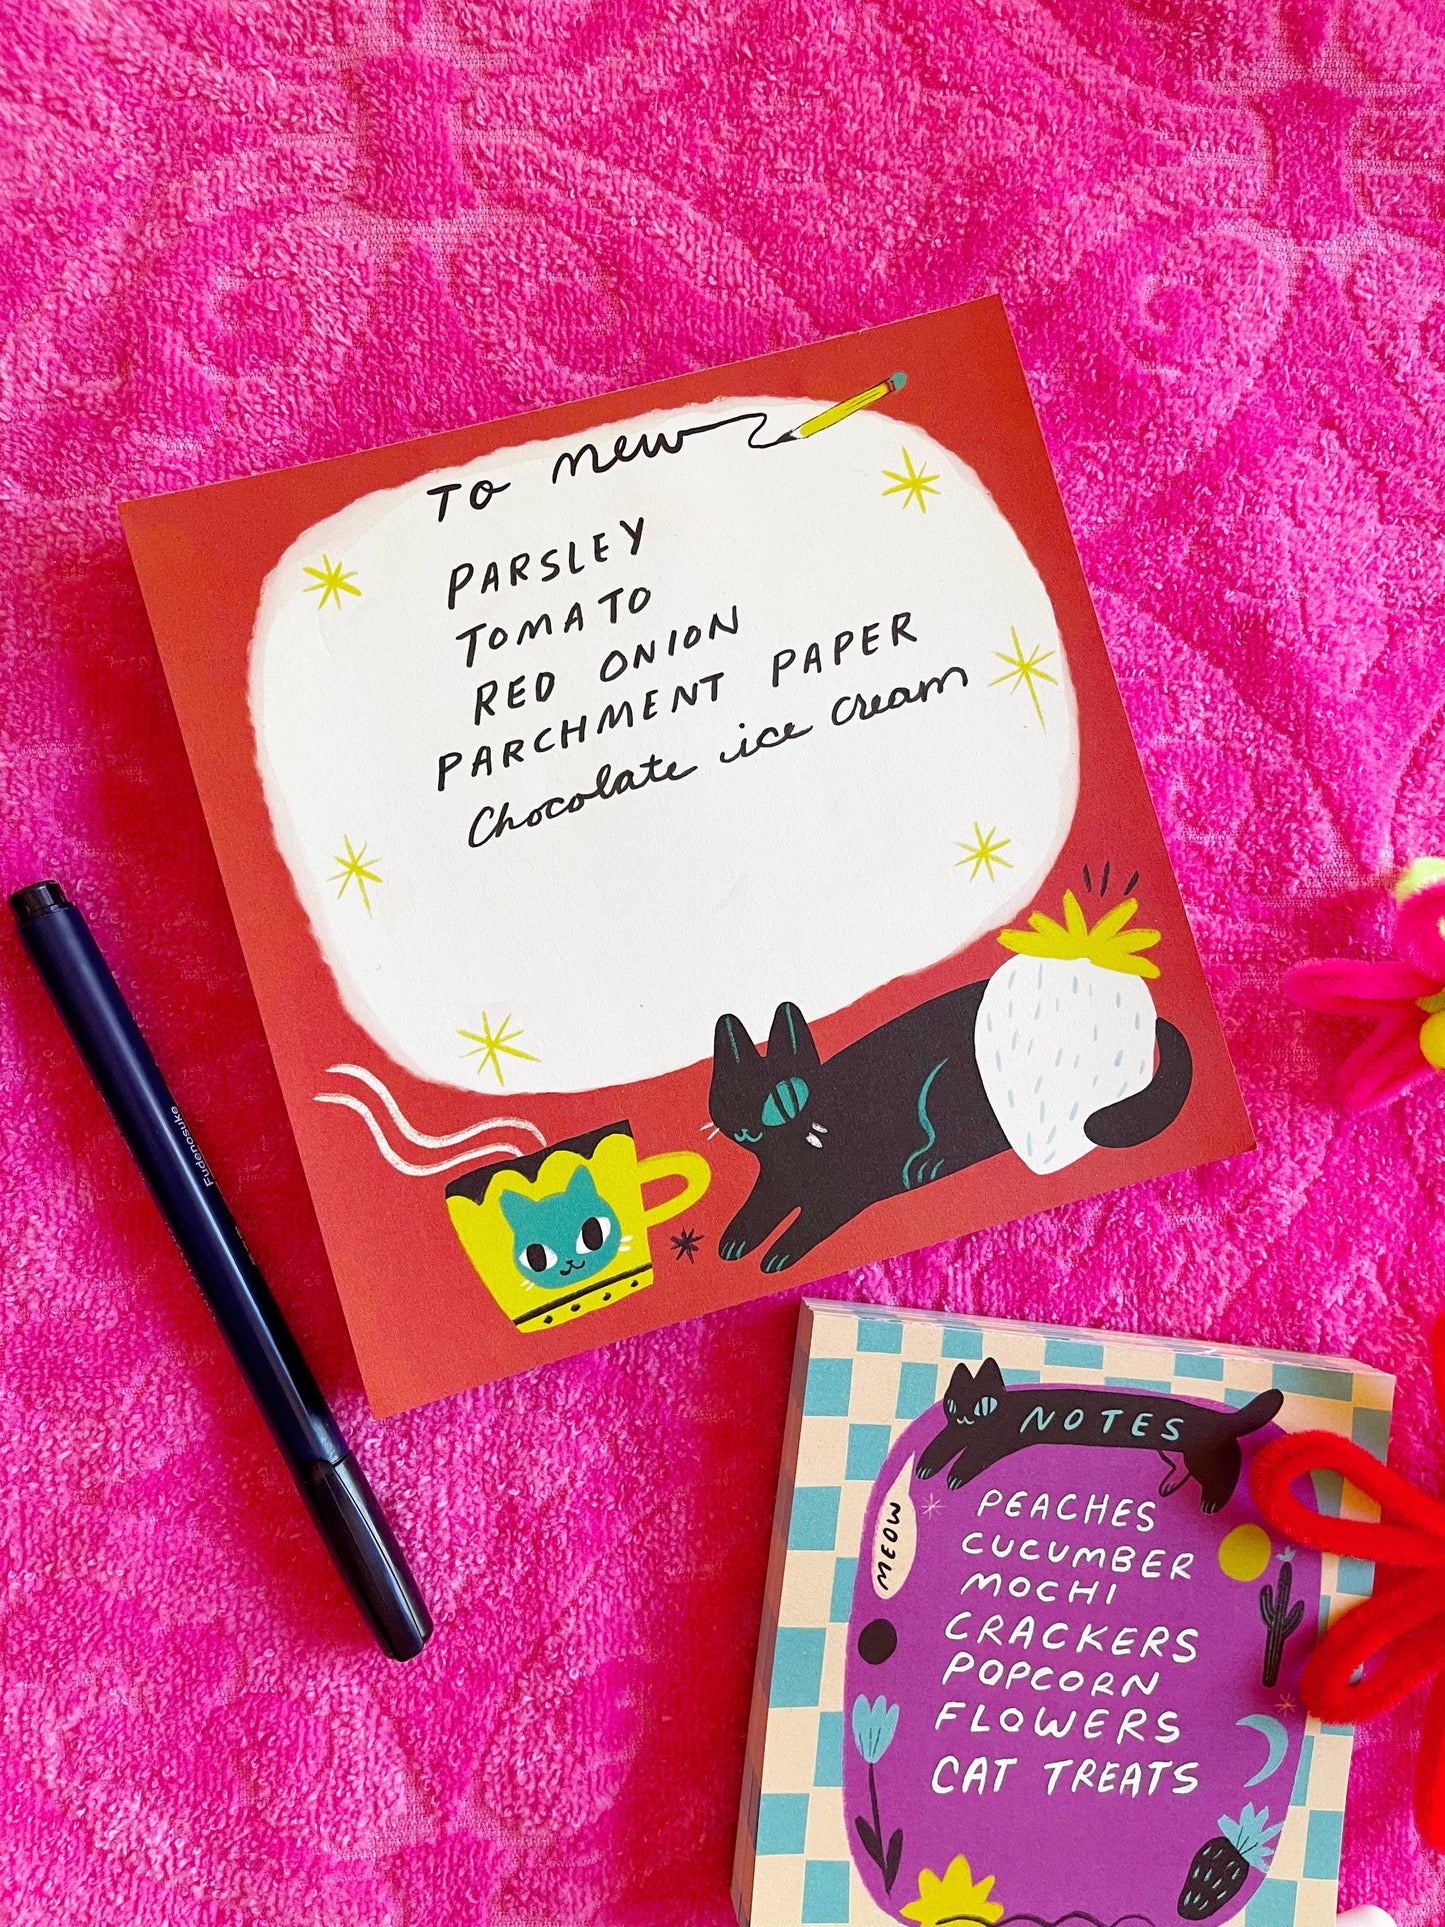 To new
PARSLEY
TOMATO
RED ONION
PARCHMENT PAPER
Chocolate ice cream
Fudenosuke
NOTES
MEOW
PEACHES
CUCUMBER
MOCHI
CRACKERS
POPCORN
FLOWERS
CAT TREATS